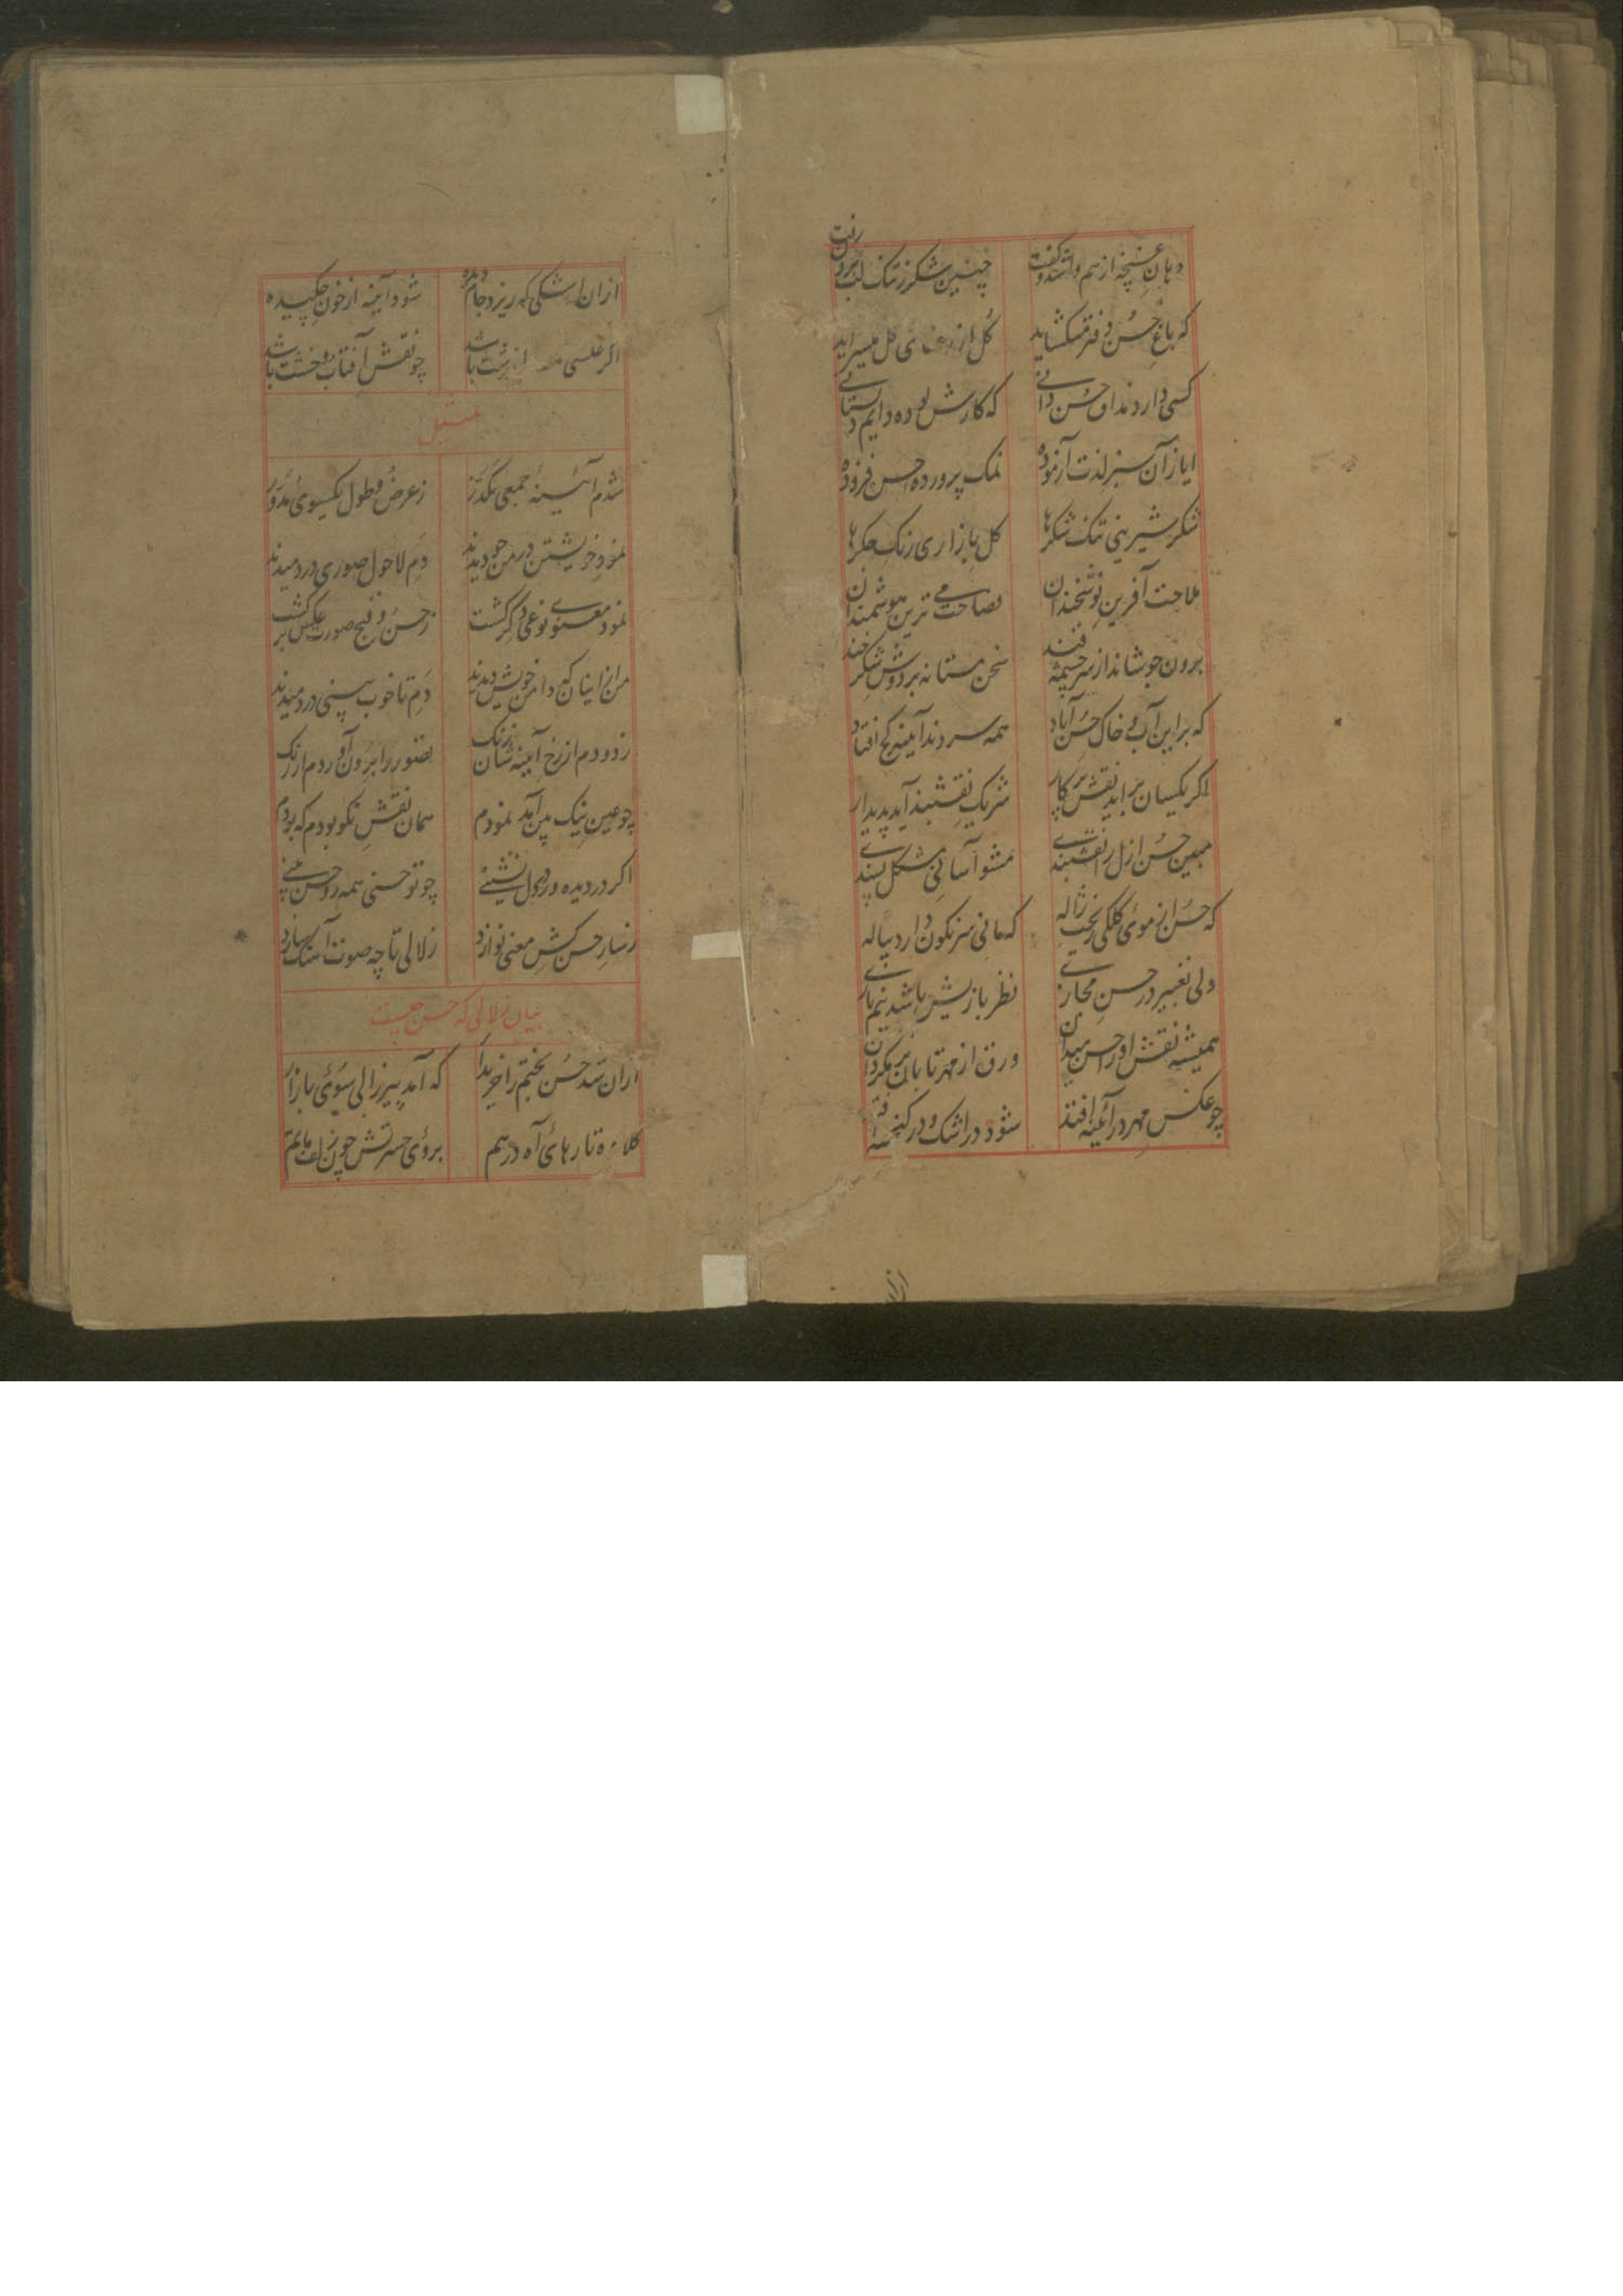 دهان غنچه از هم وا شد و گفت چنین شکر ز تنک لب برون رفت
که باغ حسن دفتر میکشاید کل از کل میسراید
کسی دارد مذاق حسن دانی که کارش بوده دایم دلستانی
ایاز آن سبز لذت آزموده نمک پرورده حسن فزوده
شکر شیرینی تنک شکرها کل بازاری رنک جکرها
ملاحت آفرین نوشخندان فصاحت ترین هوشمندان
برون جوشاند از سرچشمه قند سخن مستانه بر دوش شکرخند
که بر این آب و خاک حسن آباد همه سر دند آیینه کج افتاد
اکر یکسان براید نقش پرکار شریک نقشبند آید پدیدار
مبین حسن ازل را نقشبندی مشو آسانی مشکل پسندی
که حسن از موی کلکی ریخت ژاله که مانی سرنکون دارد پیاله
ولی تغییر در حسن مجازی نظر بازیش باشد نیم بازی
همیشه نقش او را حسن میدان ورق از مهر تابان بر مکردان
چو عکس مهر در آئینه افتد شود در اشک و در کنجینه افتد
از
ازان اشکی که ریزد جام دیده شود آیینه از خون چکیده
اکر عکسی از زشت باشد چو نقش آفتاب و خشت باشد
تمثیل
شدم آئینه جمعی مکدر ز عرض و طول یکسوی مدور
نمود خویشتن در من چو دیدند دم لاحول صوری در دمیدند
نمود معنوی نوعی دکر کشت ز حسن و قبح صورت عکس برکشت
من از اینان که در من خویش دیدند دم تا خوب بینی در دمیدند
زدودم از رخ آیینه شان زنک تصور را برون آوردم از رنک
چو عین نیک بین آمد نمودم همان نقش نکو بودم که بودم
اکر در دیده و در دل نشینی چو تو حسنی همه رو حسن بینی
ز ساز حسن کش معنی نوازد زلالی تا چه صوت آهنک سازد
بیان زلالی که حسن چیست
ازان شد حسن بختم را خریدار که آمد پیر زالی سوی بازار
کلاوه تارهای آه درهم بروی حسرتش چون زلف ماتم